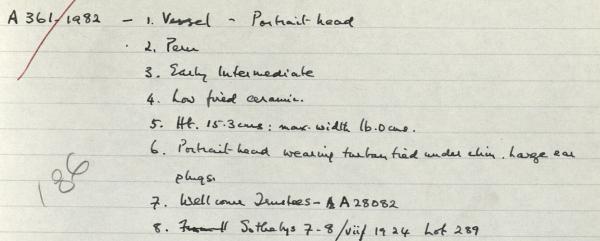 A 361/1982 - 1. Vessel - Portrait head
2. Peru
3. Early Intermediate
4. Low fired ceramic.
5. Ht. 15.3cms: max. width 16.0cms.
6. Portrait head wearing turban tied under chin. Large ear
plugs.
186
7. Wellcome Trustees - A 28082
8. Sothebys 7-8/viii/1924 Lot 289